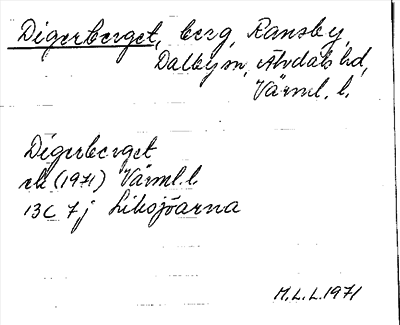 Digerberget, berg, Ransby,
Dalby sn, Älvdals hd,
Värml. l.
Digerberget
ek (1971) Värml. l.
13C 7j Likssjöarna
M.L.L. 1971